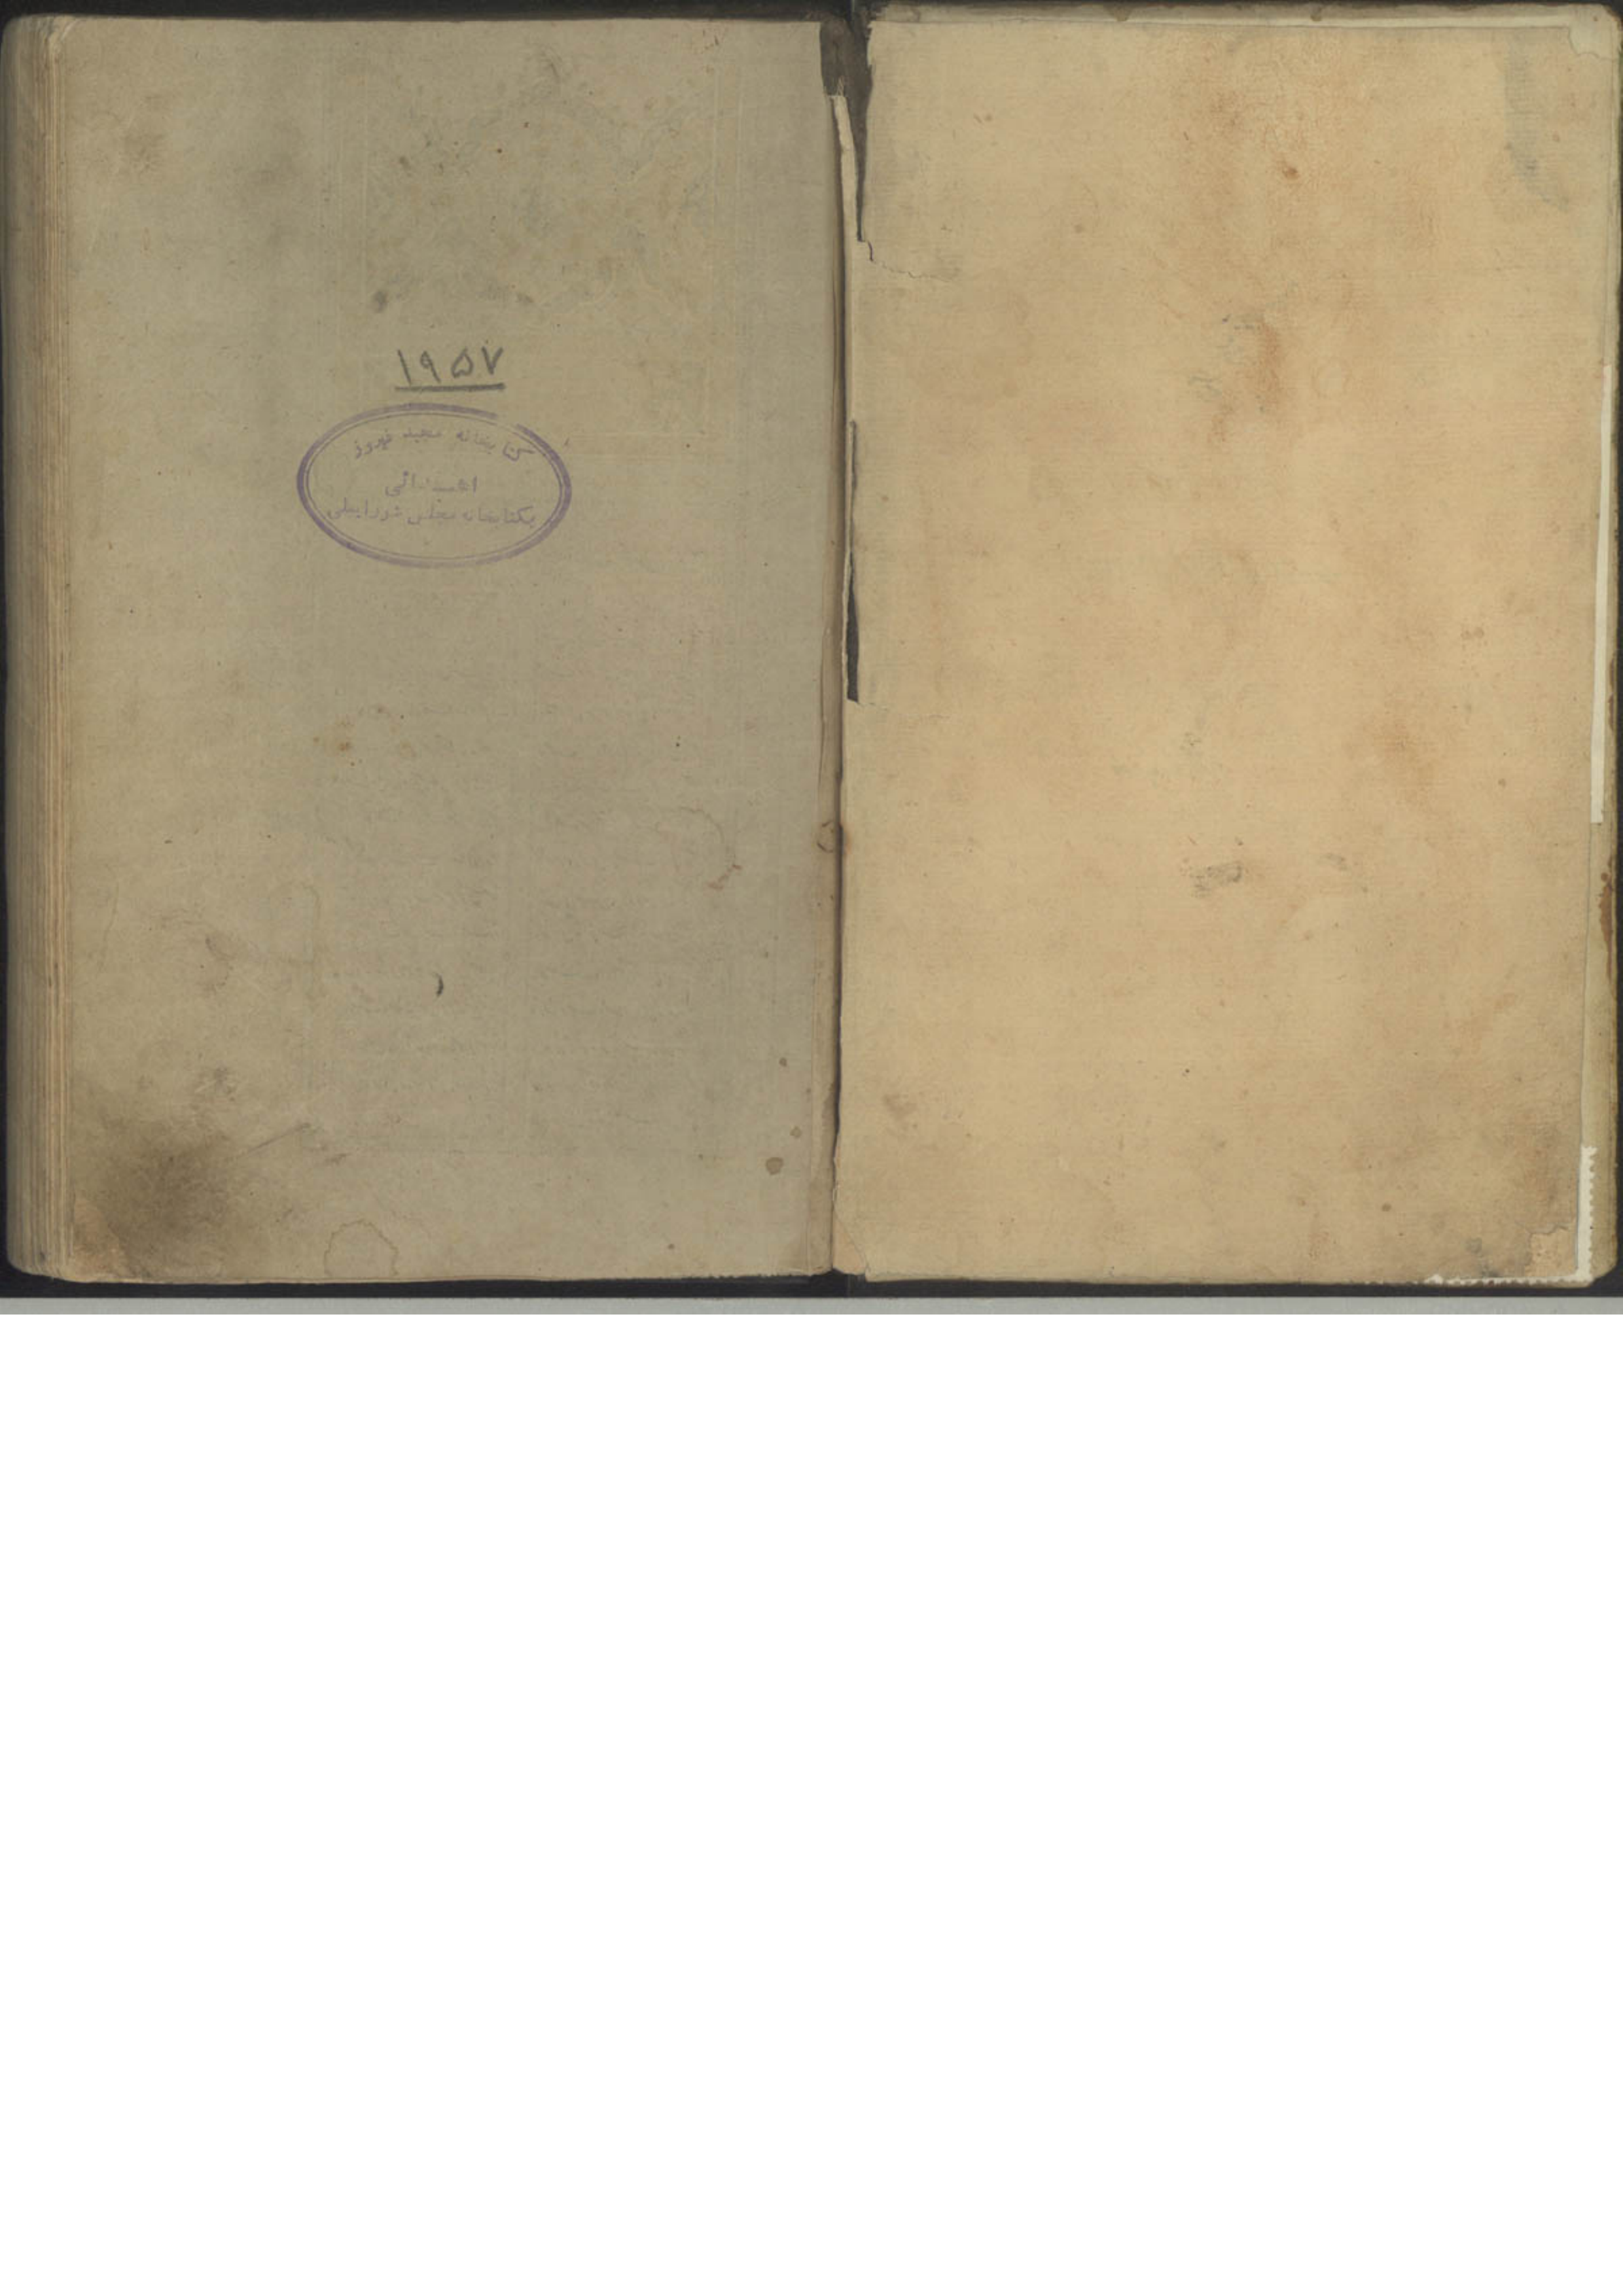 ۱۹۵۷
کتابخانه مجید فیروز
اهدائی
بکتابخانه مجلس شورایملی